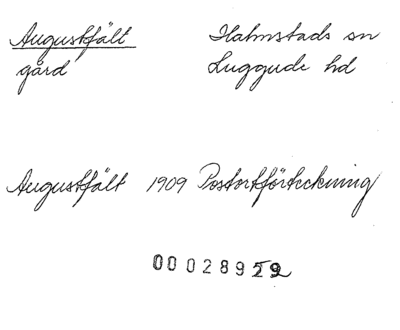 Augustfält Halmstads sn
gård Luggude hd
Augustfält 1909 Postortförteckning